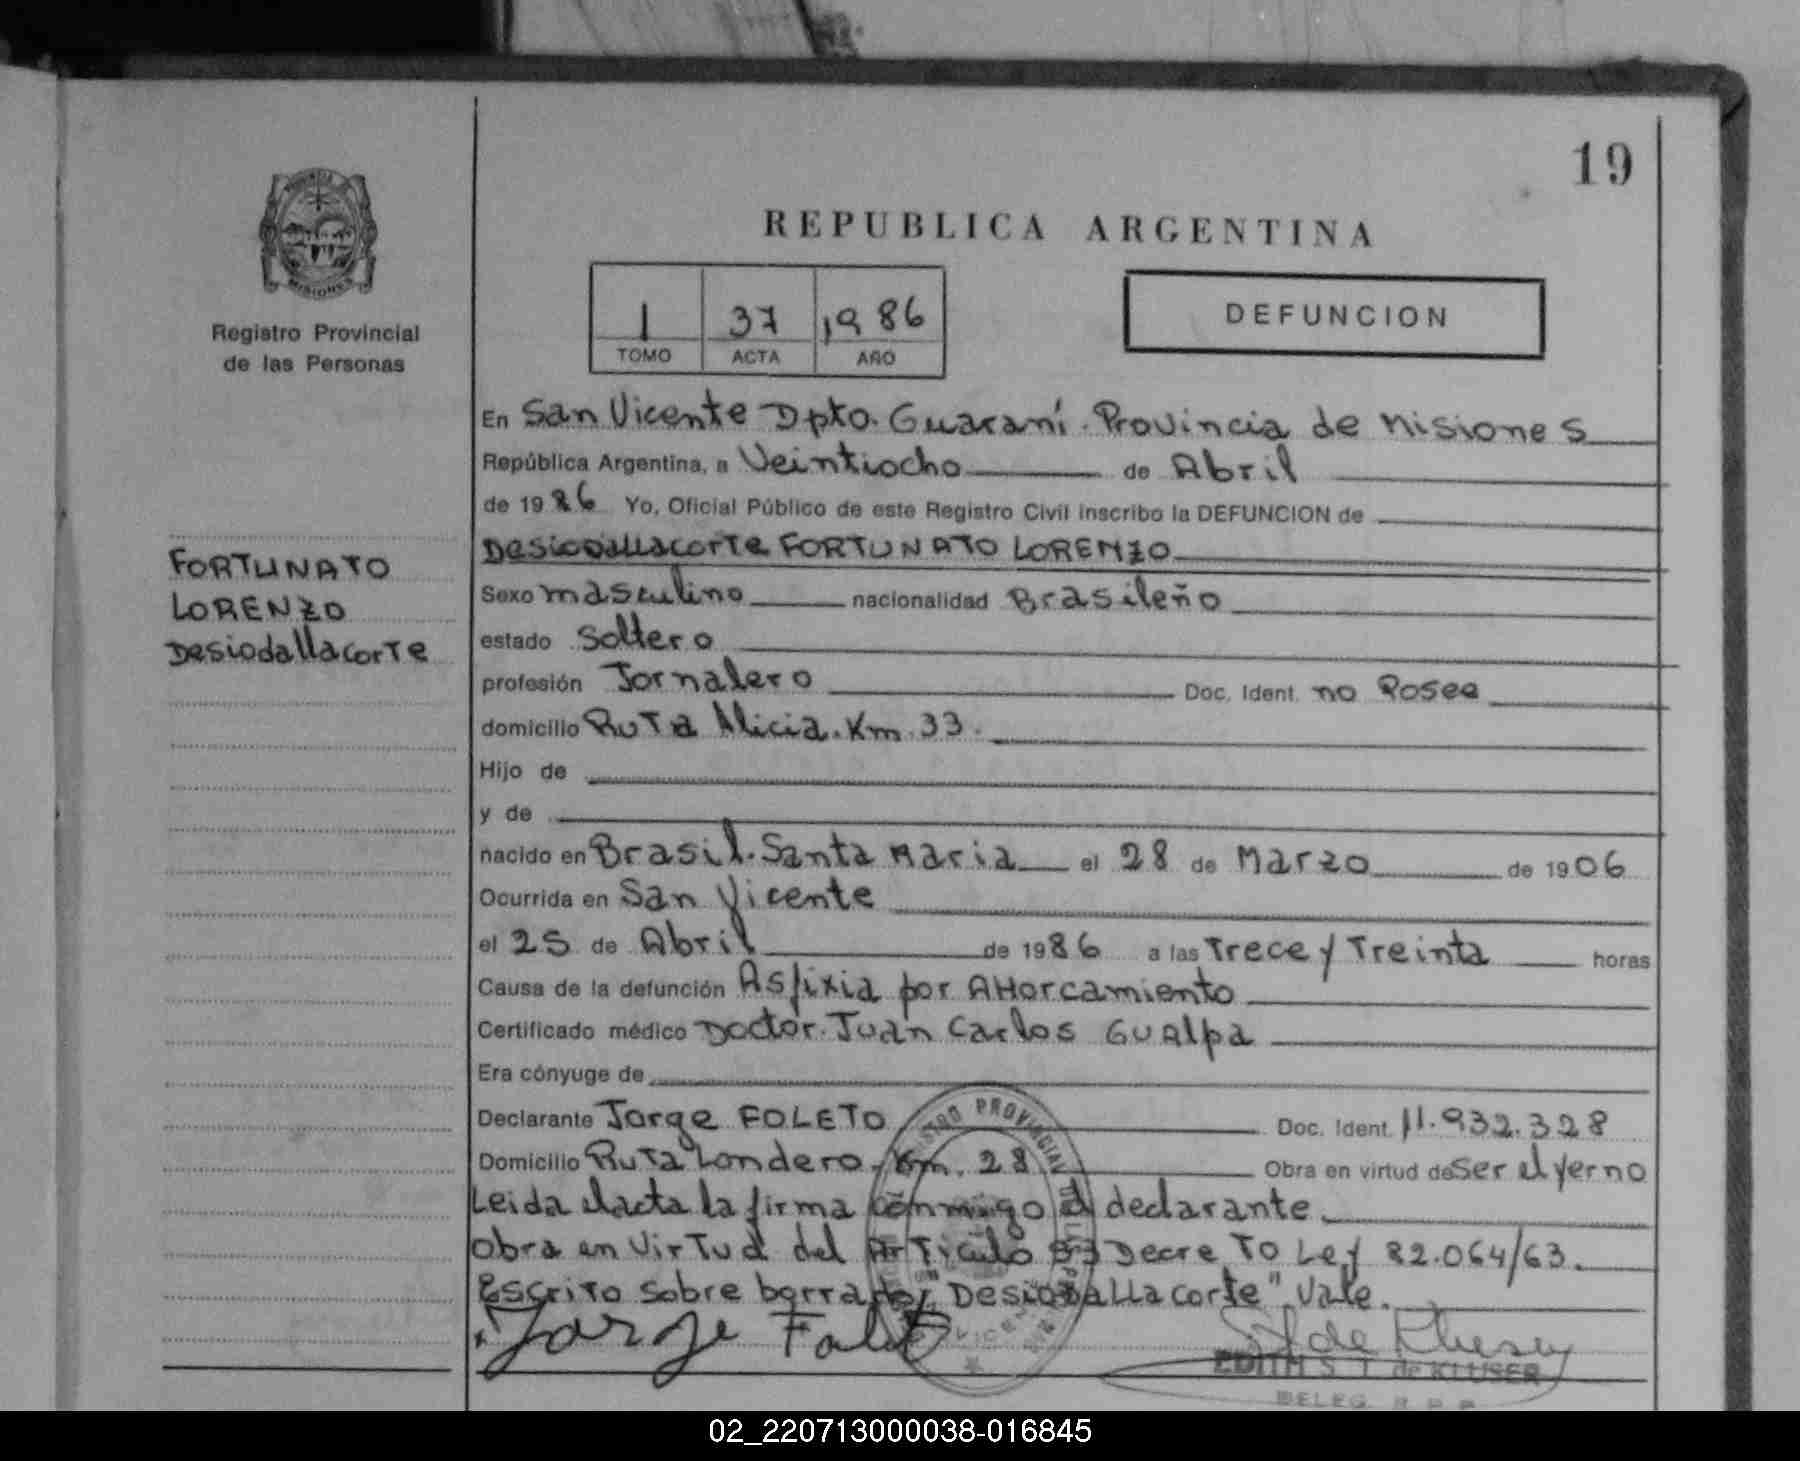 19
REPUBLICA ARGENTINA
PROVINCIA DE
MISIONES
Registro Provincial
de las Personas
1 37 1986
TOMO ACTA AÑO
DEFUNCION
FORTUNATO
LORENZO
Desiodallacorte
En San Vicente Dpto. Guaraní. Provincia de Misiones
República Argentina, a Veintiocho de Abril
de 1986 Yo, Oficial Público de este Registro Civil inscribo la DEFUNCION de
Desiodallacorte FORTUNATO LORENZO
Sexo masculino nacionalidad Brasileño
estado Soltero
profesión Jornalero Doc. Ident. no Posee
domicilio Ruta Alicia. Km. 33.
Hijo de
y de
nacido en Brasil. Santa Maria el 28 de Marzo de 1906
Ocurrida en San Vicente
el 25 de Abril de 1986 a las Trece y Treinta horas
Causa de la defunción Asfixia por AHorcamiento
Certificado médico Doctor. Juan Carlos Gualpa
Era cónyuge de
Declarante Jorge FOLETO Doc. Ident. 11.932.328
Domicilio Ruta Londero. Km. 28 Obra en virtud de Ser el yerno
Leida el acta la firma conmigo el declarante
Obra en Virtud del Articulo 93 Decreto Ley 82.064/63.
Escrito sobre borrado, Desiodallacorte" Vale.
Jorge Foleto
EDITH S. T. de KLUSER
DELEG. R. P. P.
02_220713000038-016845